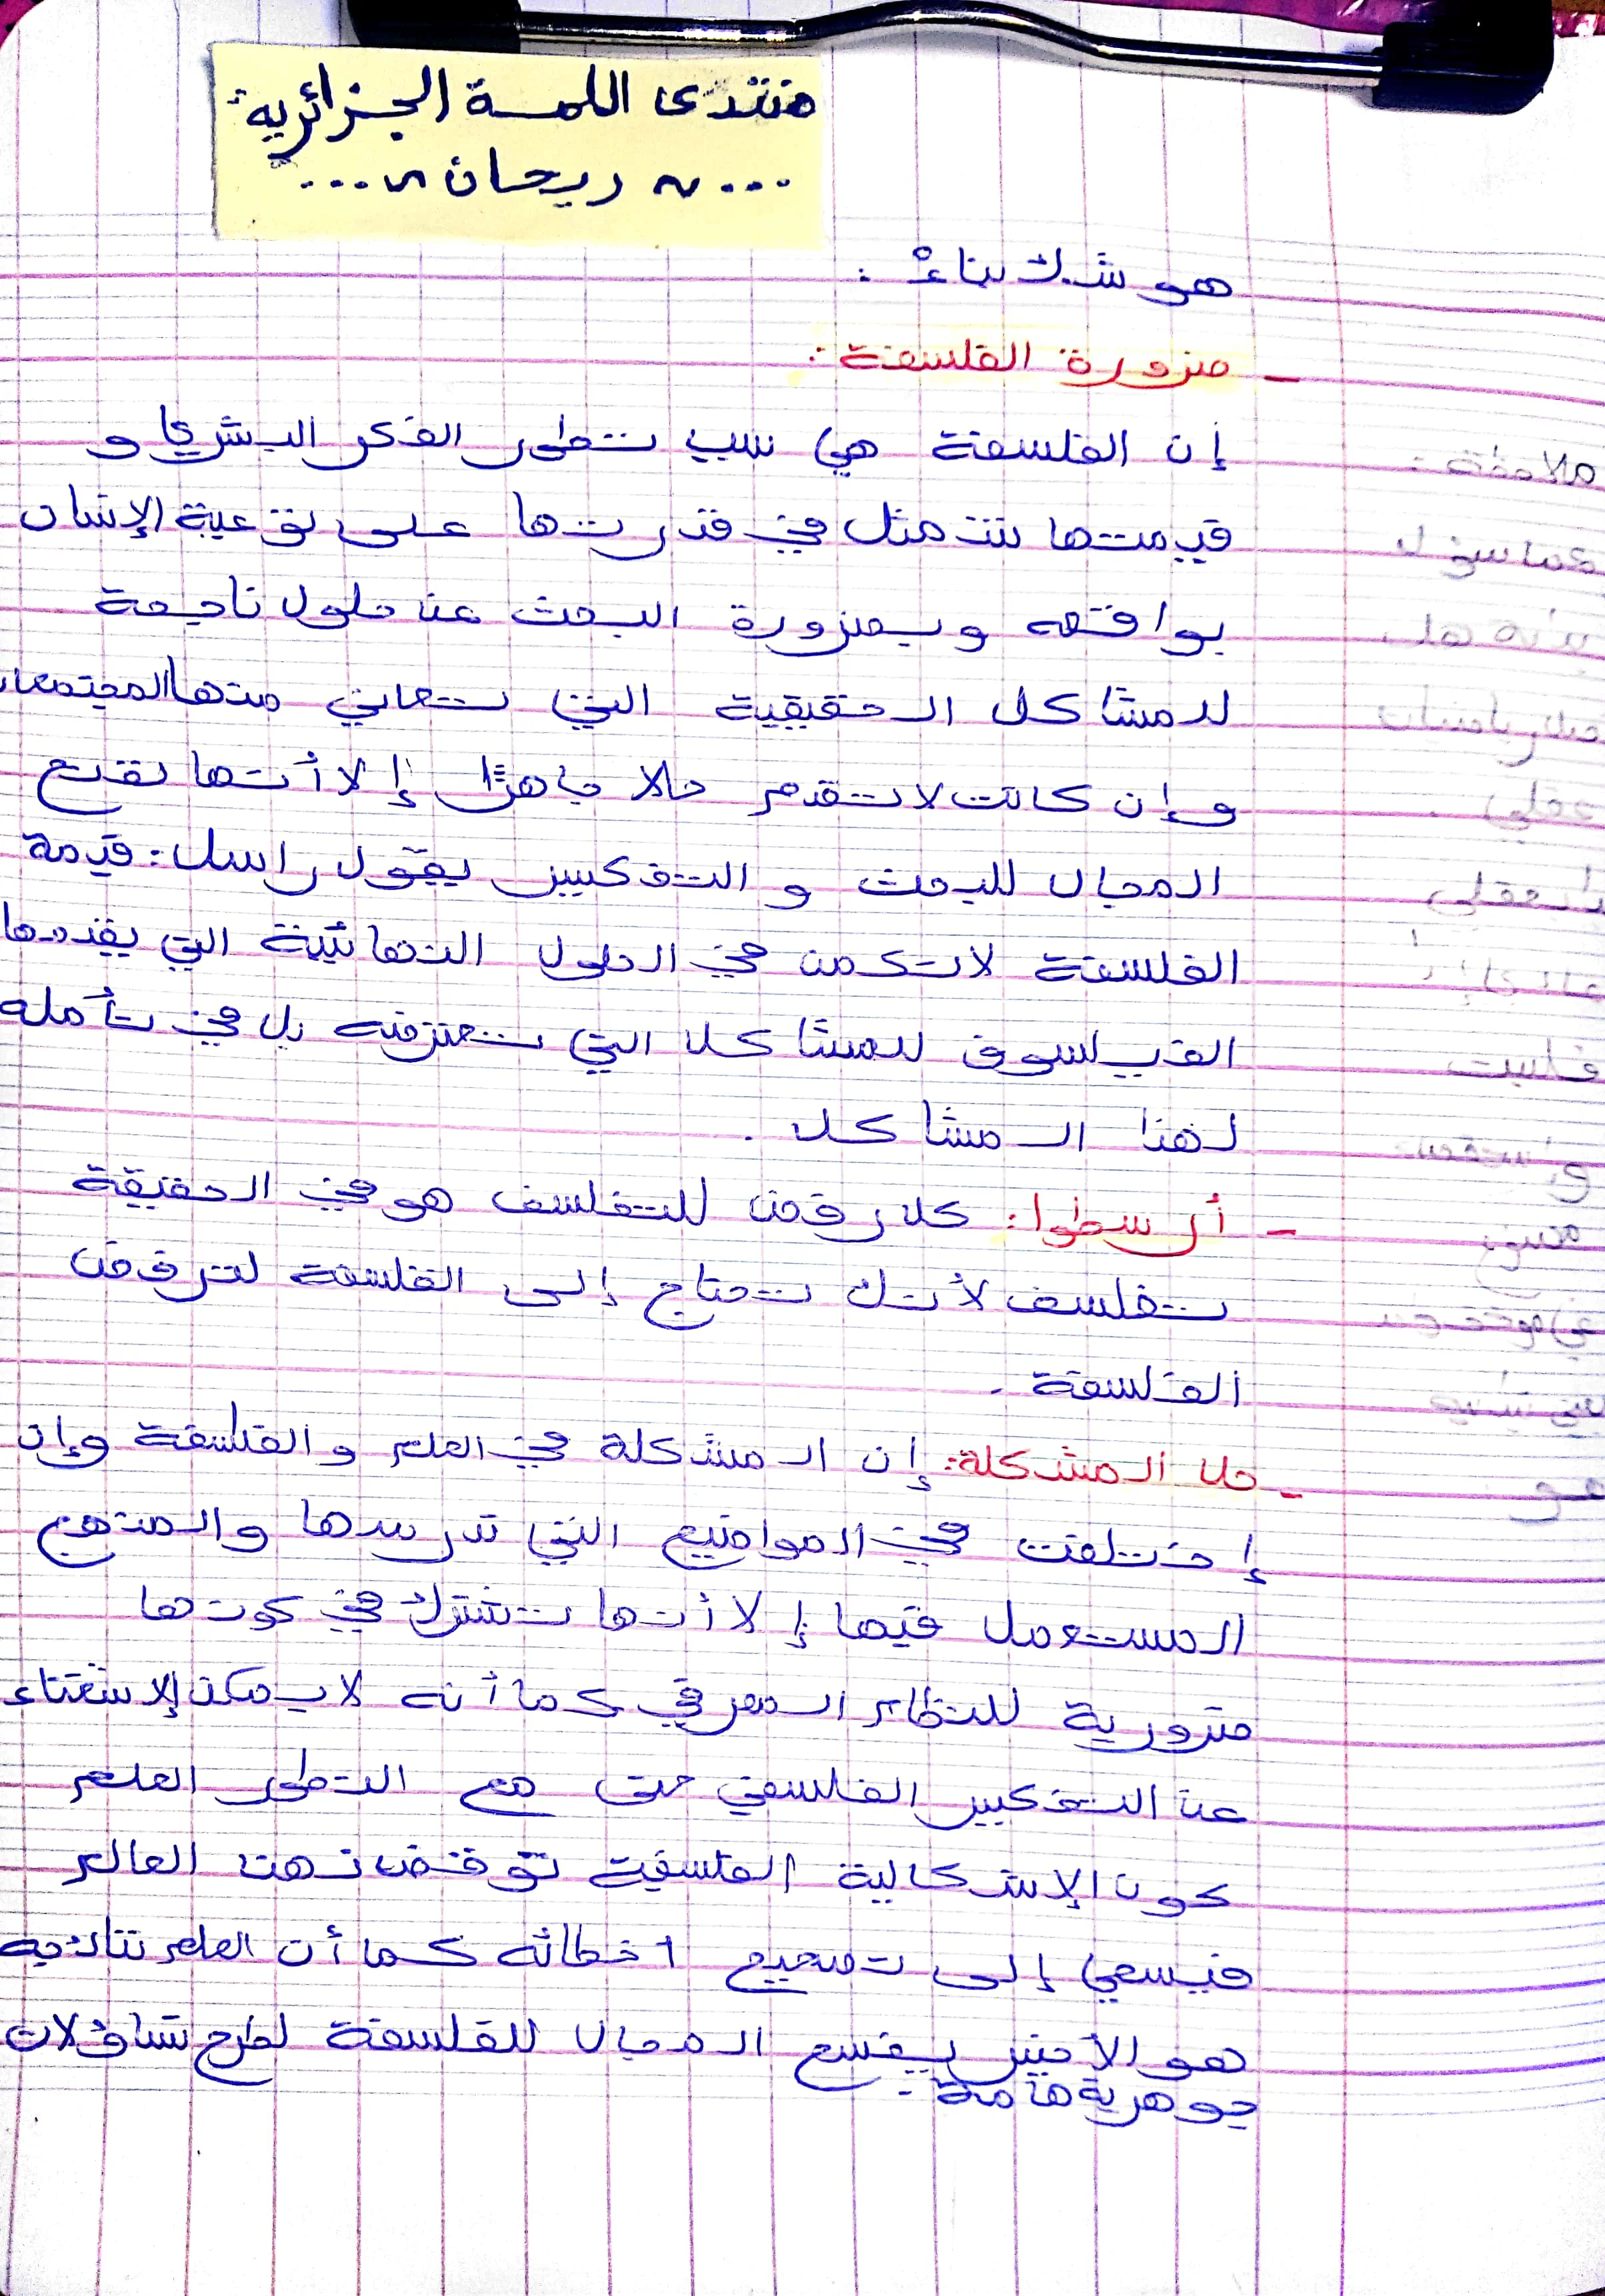 منتدى اللمسة الجزائرية
... ~ ريحان ~ ...
هو شك بناءْ :
- ضرورة الفلسفة :
إن الفلسفة هي سبب تطور الفكر البشري و
قيمتها تتمثل في قدرتها على توعية الإنسان
بواقعه وبضرورة البحث عن حلول ناجعة
للمشاكل الحقيقية التي تعاني منها المجتمعات
وإن كانت لا تقدم حلا جاهزًا إلا أنها تفتح
المجال للبحث و التفكير يقول راسل : قيمة
الفلسفة لا تكمن في الحلول النهائية التي يقدمها
الفيلسوف للمشاكل التي تعترضه بل في تأمله
لهذا المشاكل .
- أرسطوا : كل رفض للتفلسف هو في الحقيقة
تفلسف لأنك تحتاج إلى الفلسفة لترفض
الفلسفة .
- حل المشكلة : إن المشكلة في العلم و الفلسفة وإن
إختلفت في المواضيع التي تدرسها والمنهج
المستعمل فيها إلا أنها تشترك في كونها
ضرورية للنظام المعرفي كما أنه لا يمكن الإستغناء
عن التفكير الفلسفي حتى مع التطور العلم
كون الإشكالية الفلسفية توقض ذهن العالم
فيسعى إلى تصحيح اخطائه كما أن العلم نتائجه
هو الأخير يفسح المجال للفلسفة لطرح تساؤلات
جوهرية هامة .